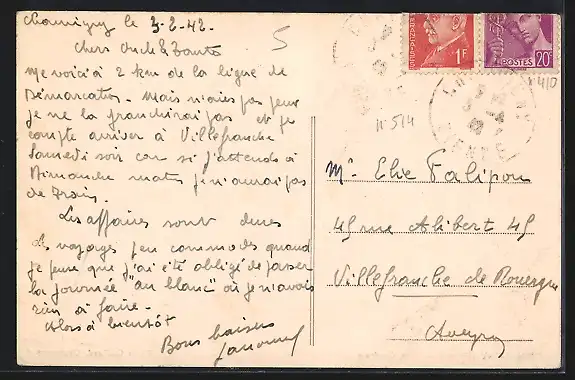 Chauvigny le 3-2-42.
Chers Oncle & Tante
Me voici à 2 km de la ligne de
Démarcation. Mais n'aies pas peur
je ne la franchirai pas et je
compte arriver à Villefranche
Samedi soir car si j'attends à
Dimanche matin je n'aurai pas
de Train.
Les affaires sont dures
Les voyages peu commodes quand
je pense que j'ai été obligé de passer
la journée "au blanc" où je n'avais
rien à faire.
Alors à bientôt
Bons baisers
5
FRANÇAISES
1F
POSTES
20c
n° 410
n° 514
Mr Elie Falipou
45 rue Alibert 45
Villefranche de Rouergue
Aveyron